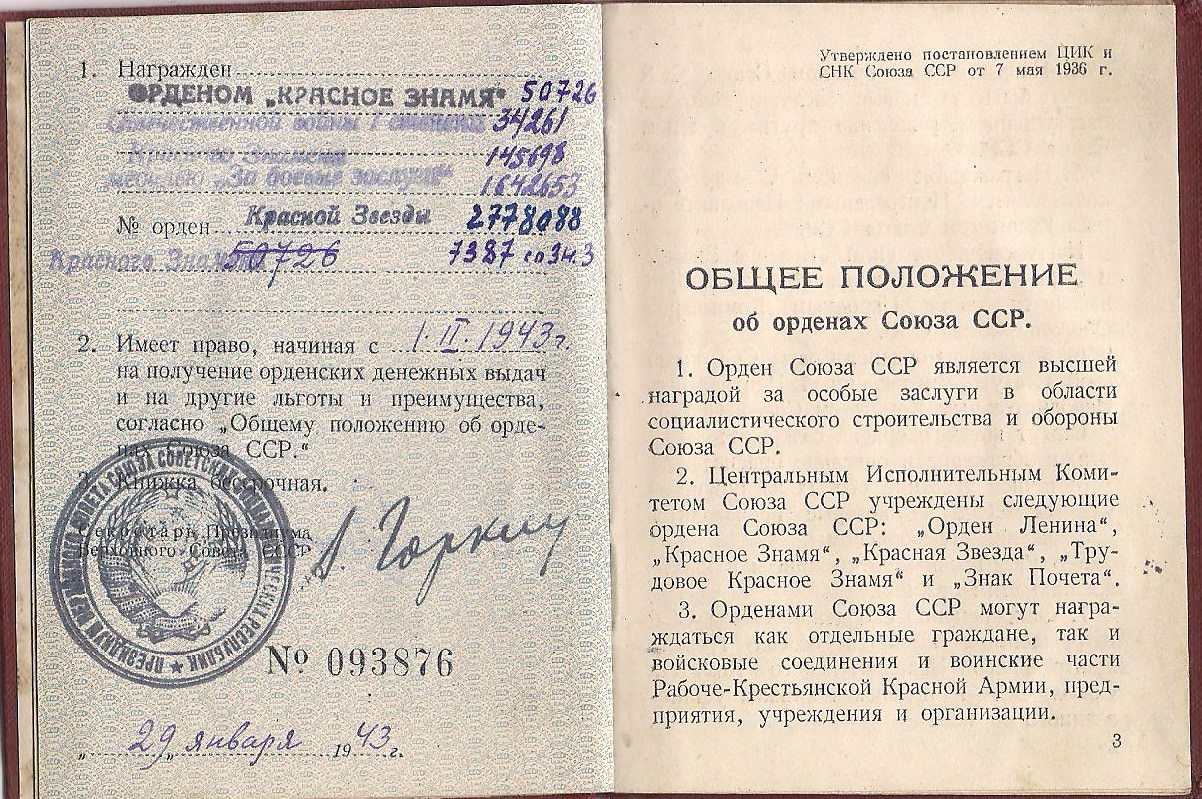 1. Награжден
ОРДЕНОМ „КРАСНОЕ ЗНАМЯ" 50726
Отечественной войны I степени 34261
145698
медалью „За боевые заслуги" 1642653
№ орден Красной Звезды 2778088
Красного Знамени 50726 7387 со зн. 3
2. Имеет право, начиная с 1. II. 1943 г.
на получение орденских денежных выдач
и на другие льготы и преимущества,
согласно „Общему положению об орде-
нах Союза ССР."
3. Книжка бессрочная.
Секретарь Президиума
Верховного Совета СССР
А. Горкин
ПРЕЗИДИУМ ВЕРХОВНОГО СОВЕТА СОЮЗА СОВЕТСКИХ СОЦИАЛИСТИЧЕСКИХ РЕСПУБЛИК
№ 093876
„29" января 1943 г.
Утверждено постановлением ЦИК и
СНК Союза ССР от 7 мая 1936 г.
ОБЩЕЕ ПОЛОЖЕНИЕ
об орденах Союза ССР.
1. Орден Союза ССР является высшей
наградой за особые заслуги в области
социалистического строительства и обороны
Союза ССР.
2. Центральным Исполнительным Коми-
тетом Союза ССР учреждены следующие
ордена Союза ССР: „Орден Ленина",
„Красное Знамя", „Красная Звезда", „Тру-
довое Красное Знамя" и „Знак Почета".
3. Орденами Союза ССР могут награ-
ждаться как отдельные граждане, так и
войсковые соединения и воинские части
Рабоче-Крестьянской Красной Армии, пред-
приятия, учреждения и организации.
3